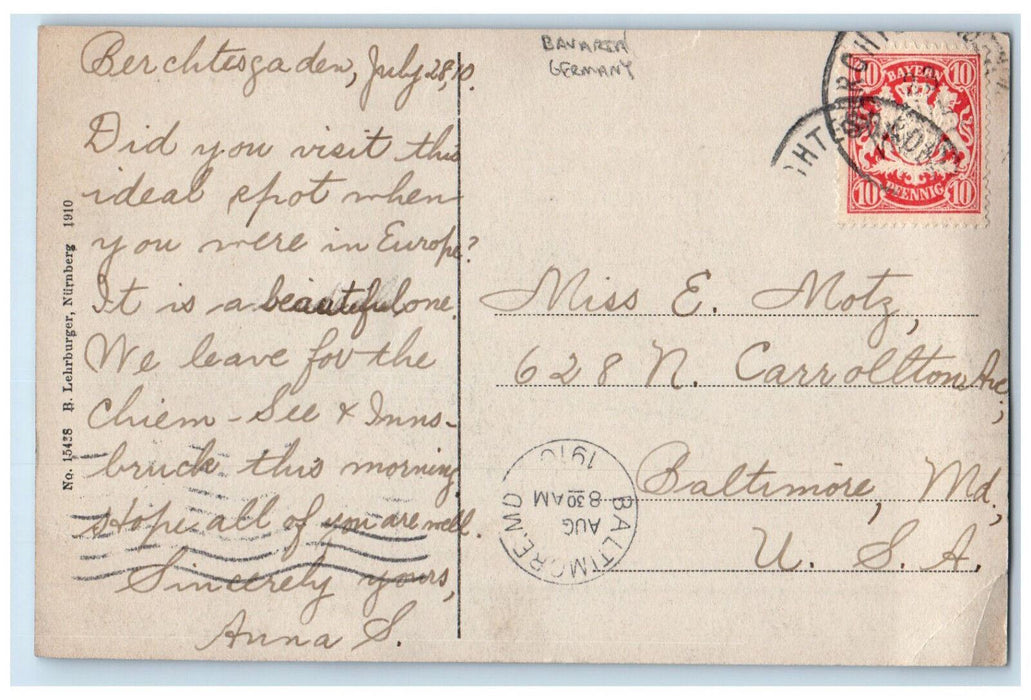 Berchtesgaden, July 28, 10.
Did you visit this
ideal spot when
you were in Europe?
It is a beautiful one.
We leave for the
Chiem-See & Inns-
bruck this morning
Hope all of you are well.
Sincerely yours,
Anna S.
No. 15438 B. Lehrburger, Nürnberg 1910
BAVARIA
GERMANY
10 BAYERN 10
10 PFENNIG 10
Miss E. Motz,
628 N. Carrollton Ave.,
Baltimore, Md.,
U. S. A.
BALTIMORE, MD
AUG
8 30 AM
1910